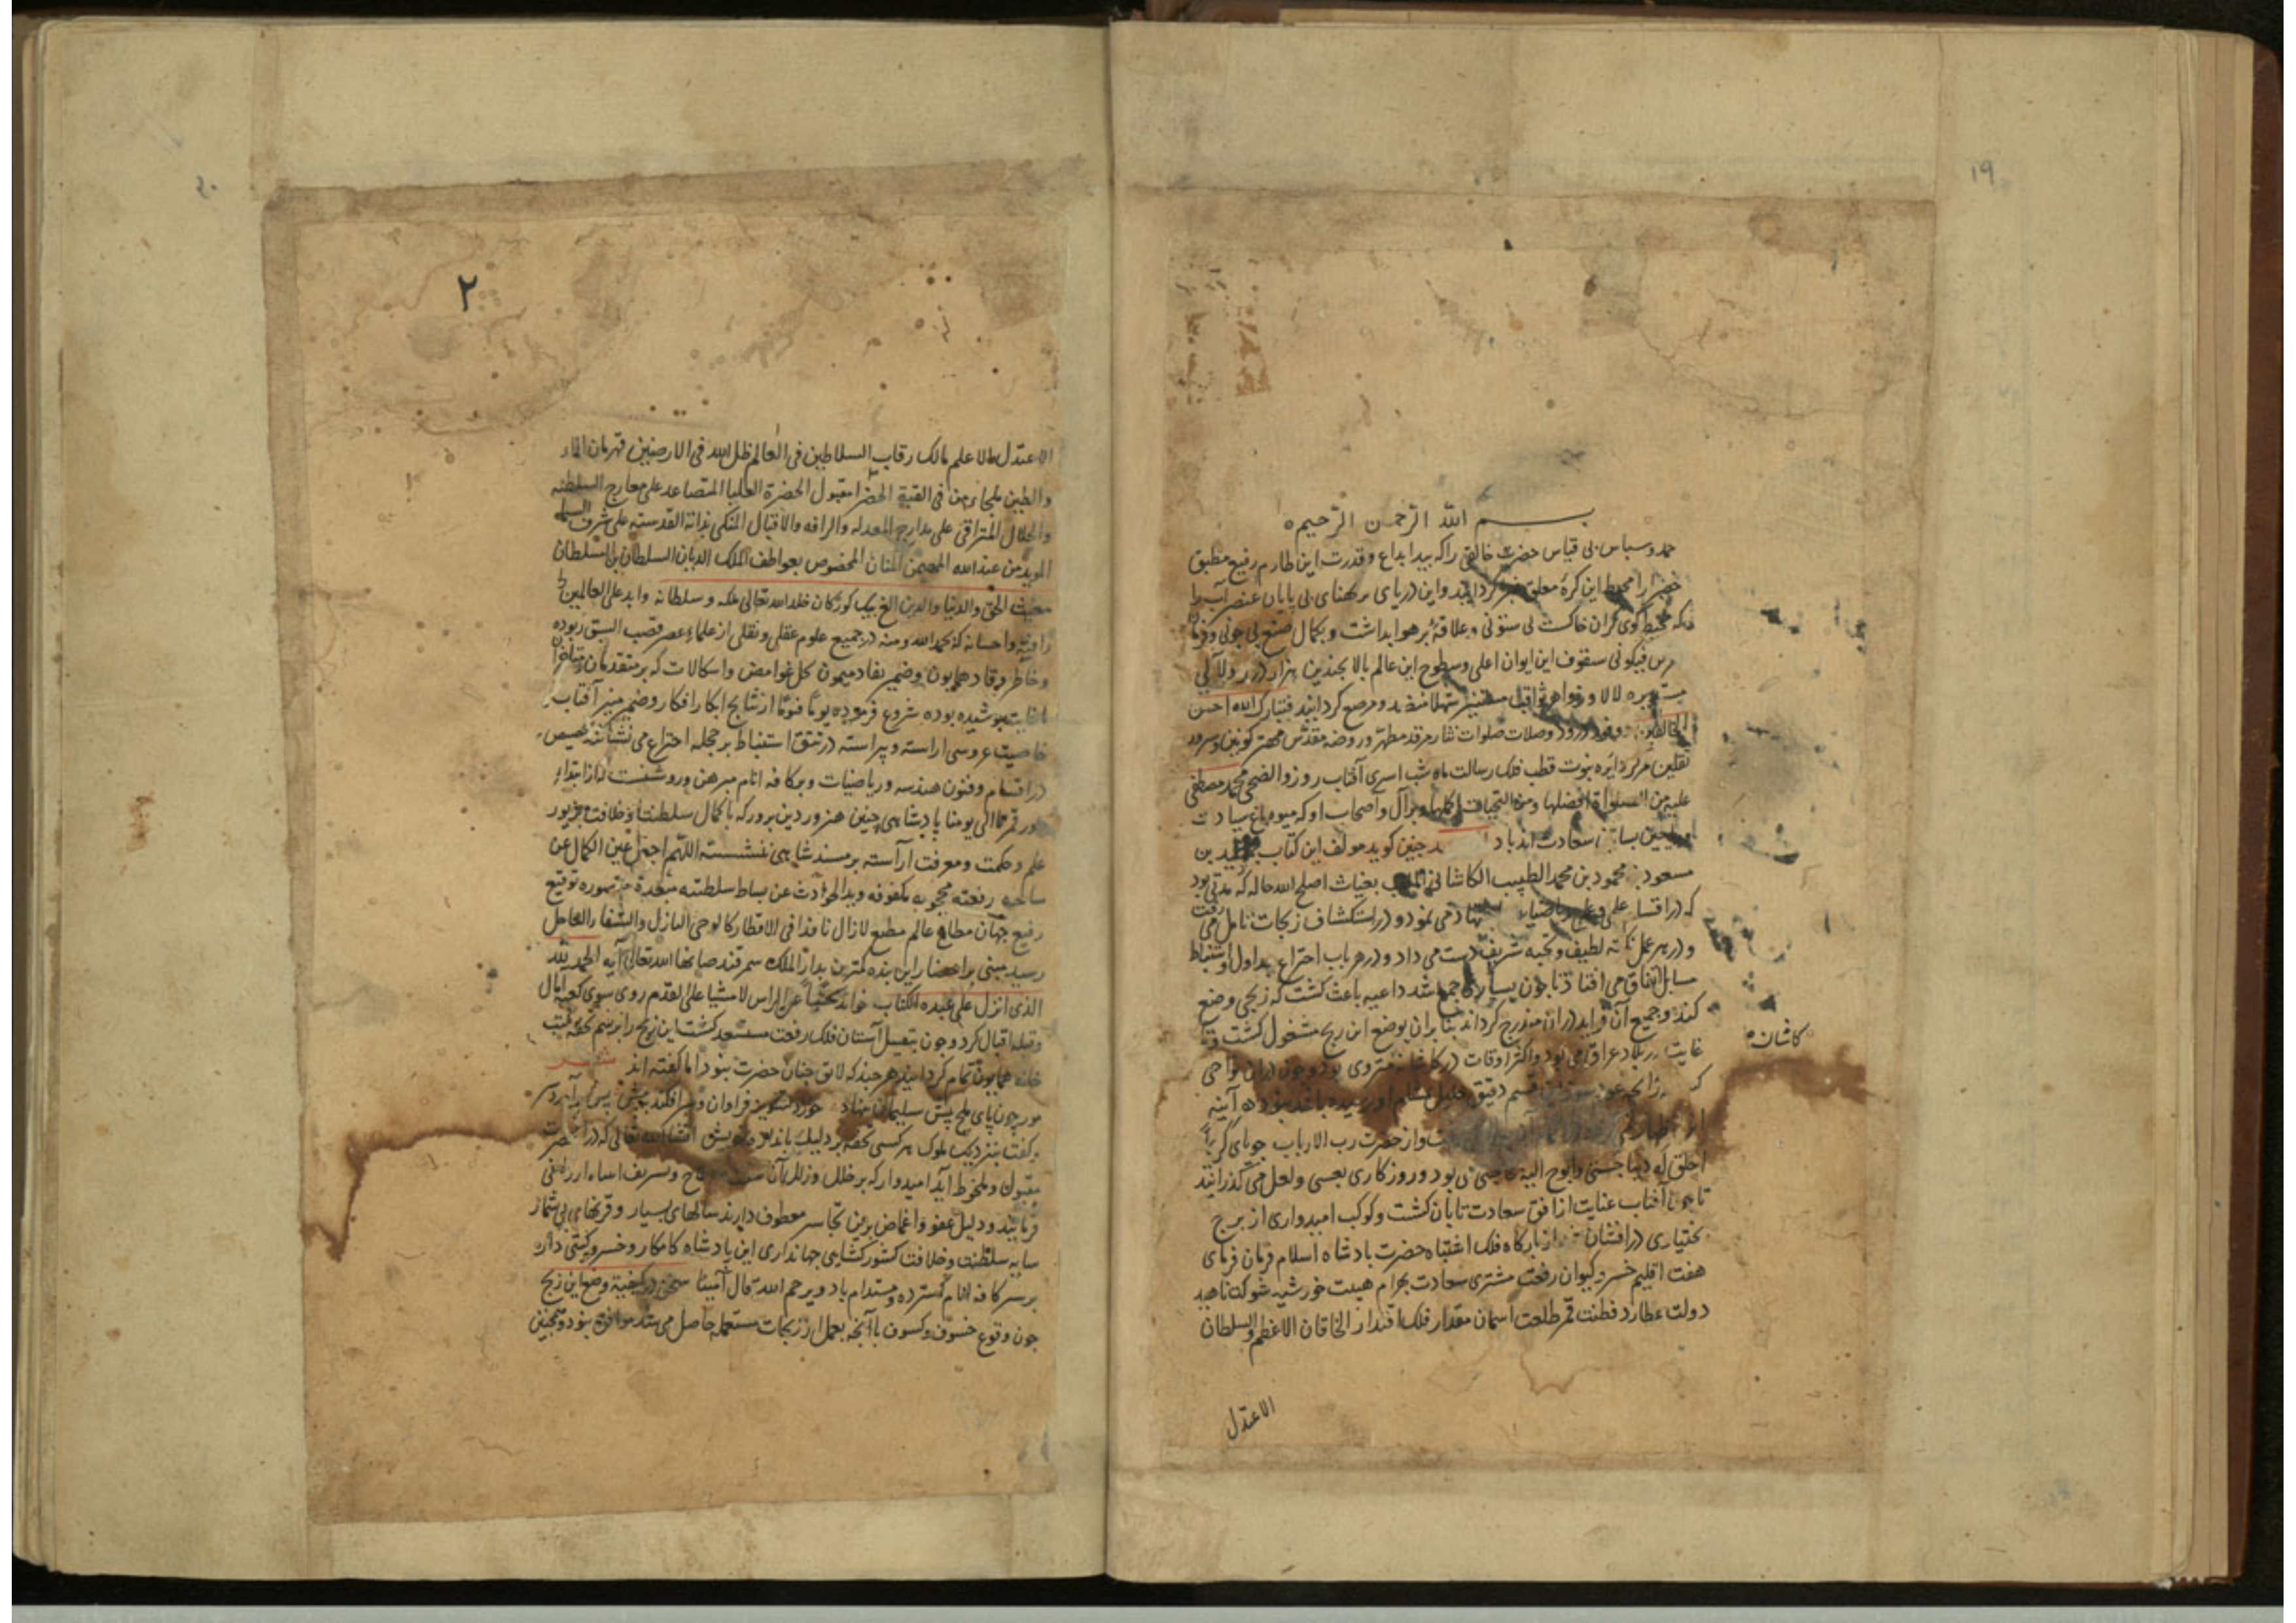 ۱۹
بسم الله الرحمن الرحیم
حمد و سپاس بی قیاس حضرت خالقی را که بید ابداع و قدرت این طارم رفیع مطبق
خضرا را محیط این کره معلق گردانید و این دریای پهنای بی پایان عنصر آب را
گوی گران خاک بی ستونی و علاقه بر هوا بداشت و بکمال صنع بی چونی و
سقوف این ایوان اعلی و سطوح این عالم بالا بچندین هزار درر و لآلی
لالا و مرصع گردانید فتبارک الله احسن
الخالقین و وفود درود و صلات صلوات نثار مرقد مطهر و روضه مقدس مهتر کونین و سرور
ثقلین مرکز دایره نبوت قطب فلک رسالت ماه شب اسری آفتاب روز والضحی محمد مصطفی
علیه من الصلواة افضلها ومن التحیات اکملها و بر آل و اصحاب او که میوه باغ سیادت
سعادت اند باد چنین کوید مولف این کتاب جمشید بن
مسعود بن محمود بن محمد الطبیب الکاشانی الملقب بغیاث اصلح الله حاله که مدتی بود
که در اقسام علمی و عملی ریاضیات می نمود و در استکشاف زیجات تامل می رفت
و در هر عمل نکته لطیف و شریف دست می داد و در هر باب اختراع جداول و استنباط
مسایل اتفاق می افتاد تا چون بسیاری جمع شد داعیه باعث کشت که زیجی وضع
کند و جمیع آن فواید در آن مندرج گرداند بنا بران بوضع این زیج مشغول کشت و
غایت در بلاد عراق می بود و اکثر اوقات در کاشان منزوی بود و چون دران نواحی
کاشان
که قسم دقیق جلیل آینه
و از حضرت رب الارباب جویای
اخلق له دیباجتی وابوح الیه می بود و روزکاری بعسی و لعل می گذرانید
تا چون آفتاب عنایت از افق سعادت تابان کشت و کوکب امیدواری از برج
بختیاری درافشان شد از بارگاه فلک اشتباه حضرت پادشاه اسلام فرمان فرمای
هفت اقلیم خسرو کیوان رفعت مشتری سعادت بهرام هیبت خورشید شوکت ناهید
دولت عطارد فطنت قمر طلعت اسمان مقدار فلک اقتدار الخاقان الاعظم والسلطان
الاعدل
۲۰
۲
الاعدل الاعلم مالک رقاب السلاطین فی العالم ظل الله فی الارضین قهرمان الماء
والطین ملجاء من فی القبة الخضرا مقبول الحضرة العلیا المتصاعد علی معارج السلطنه
والجلال المتراقی علی مدارج المعدله والرافه والاقبال المتکی بذاته القدسیة علی شرف
المؤید من عند الله المهیمن المنان المخصوص بعواطف الملک الدیان السلطان بن السلطان
مغیث الحق والدنیا والدین الغ بیک کورکان خلد الله تعالی ملکه و سلطانه وابد علی العالمین
رافته و احسانه که بحمد الله و منه در جمیع علوم عقلی و نقلی از علماء عصر قصب السبق ربوده
و خاطر وقاد همایون و ضمیر نقاد میمون بحل غوامض و اشکالات که بر متقدمان و متاخران
پوشیده بوده شروع فرموده یوماً فیوماً از نتایج ابکار افکار و ضمیر منیر آفتاب
خاصیت عروسی اراسته و پیراسته در تتق استنباط بر حجله اختراع می نشانند خصیص
در اقسام و فنون هندسه و ریاضیات و بر کافه انام مبرهن و روشنست که از ابتداء
دور قمر الی یومنا پادشاهی چنین هنرور دین پرور که با کمال سلطنت و خلافت بزیور
علم و حکمت و معرفت آراسته بر مسند شاهی ننشسته اللهم اجعل عین الکمال عن
ساحه رفعته محجوبه مکفوفه وید الحوادث عن بساط سلطنته توقیع
رفیع جهان مطاع عالم مطیع لازال نافذا فی الاقطار کالوحی النازل
رسید مبنی بر احضار این بنده کمترین بدار الملک سمرقند صانها الله تعالی آیه الحمد لله
الذی انزل علی عبده الکتاب خواند الراس لا مشیا علی القدم روی سوی کعبه امال
و قبله اقبال کرد و چون بتقبیل آستان فلک رفعت مستسعد کشت این زیج را برسم تحفه
خانه همایون تمام گردانید هر چند که لائق جنان حضرت نبود اما گفته اند شعر
مور چون پای ملخ پیش سلیمان نهاد
بزدیک ملوک هر کسی تحفه بر دلیک باندازه خویش انشاء الله تعالی که در حضرت
مقبول و ملحوظ آید امیدوار که بر خلل و زلل آن و تشریف ارزانی
فرمایند و ذیل عفو و اغماض برین تجاسر معطوف دارند سالهای بسیار و قرنهای بی شمار
سایه سلطنت و خلافت کشورکشایی جهانداری این پادشاه کامکار و خسرو کیتی دار
بر سر کافه انام گسترده و مستدام باد ویرحم الله من قال آمینا سخن در کیفیة وضع این زیج
چون وقوع خسوف و کسوف با آنچه بعمل از زیجات مستعمله حاصل می شد موافق نبود و همچنین